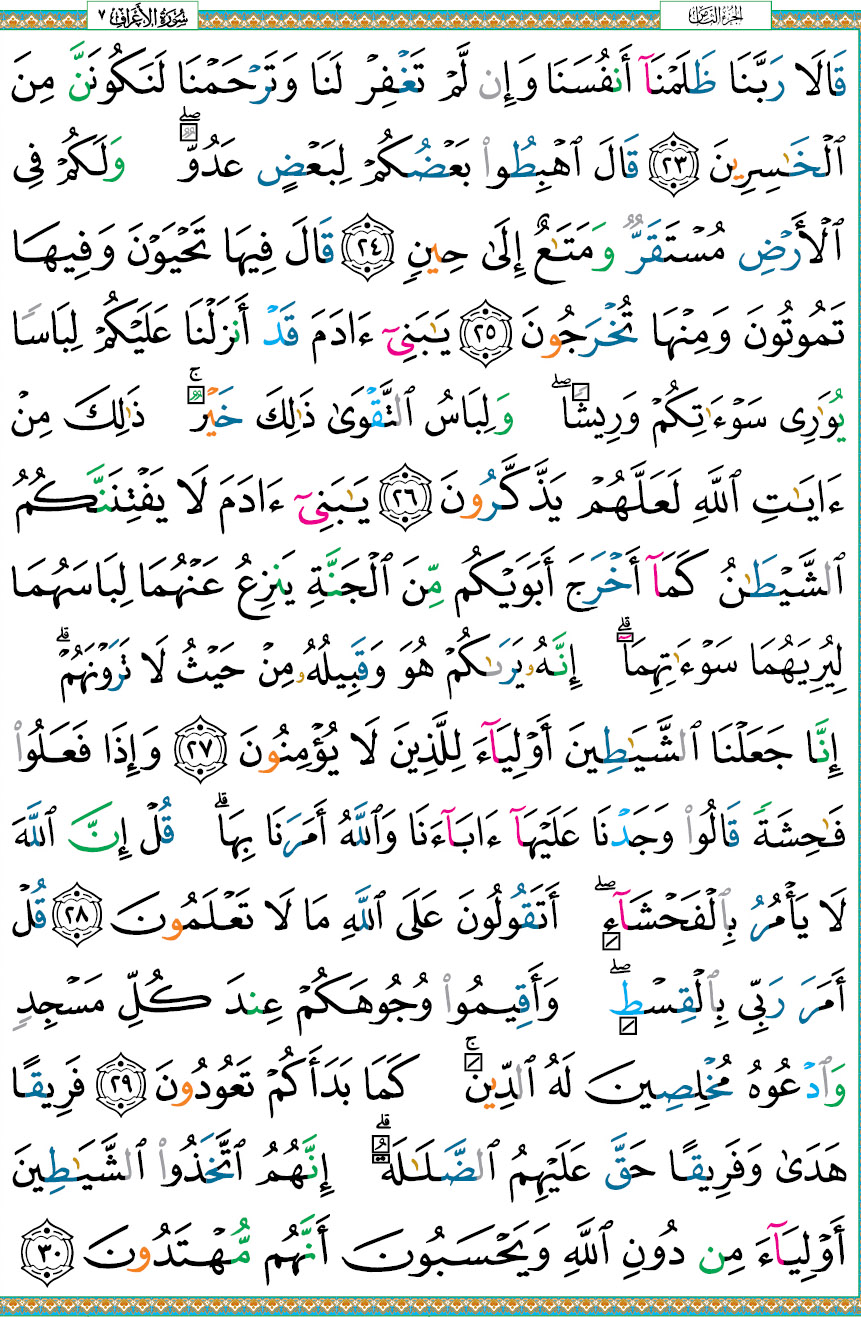 الجزء الثامن
سورة الأعراف ٧
قَالَا رَبَّنَا ظَلَمْنَآ أَنفُسَنَا وَإِن لَّمْ تَغْفِرْ لَنَا وَتَرْحَمْنَا لَنَكُونَنَّ مِنَ
ٱلْخَـٰسِرِينَ ٢٣ قَالَ ٱهْبِطُوا۟ بَعْضُكُمْ لِبَعْضٍ عَدُوٌّ ۖ وَلَكُمْ فِى
ٱلْأَرْضِ مُسْتَقَرٌّ وَمَتَـٰعٌ إِلَىٰ حِينٍ ٢٤ قَالَ فِيهَا تَحْيَوْنَ وَفِيهَا
تَمُوتُونَ وَمِنْهَا تُخْرَجُونَ ٢٥ يَـٰبَنِىٓ ءَادَمَ قَدْ أَنزَلْنَا عَلَيْكُمْ لِبَاسًا
يُوَٰرِى سَوْءَٰتِكُمْ وَرِيشًا ۖ وَلِبَاسُ ٱلتَّقْوَىٰ ذَٰلِكَ خَيْرٌ ۚ ذَٰلِكَ مِنْ
ءَايَـٰتِ ٱللَّهِ لَعَلَّهُمْ يَذَّكَّرُونَ ٢٦ يَـٰبَنِىٓ ءَادَمَ لَا يَفْتِنَنَّكُمُ
ٱلشَّيْطَـٰنُ كَمَآ أَخْرَجَ أَبَوَيْكُم مِّنَ ٱلْجَنَّةِ يَنزِعُ عَنْهُمَا لِبَاسَهُمَا
لِيُرِيَهُمَا سَوْءَٰتِهِمَآ ۗ إِنَّهُۥ يَرَىٰكُمْ هُوَ وَقَبِيلُهُۥ مِنْ حَيْثُ لَا تَرَوْنَهُمْ ۗ
إِنَّا جَعَلْنَا ٱلشَّيَـٰطِينَ أَوْلِيَآءَ لِلَّذِينَ لَا يُؤْمِنُونَ ٢٧ وَإِذَا فَعَلُوا۟
فَـٰحِشَةً قَالُوا۟ وَجَدْنَا عَلَيْهَآ ءَابَآءَنَا وَٱللَّهُ أَمَرَنَا بِهَا ۗ قُلْ إِنَّ ٱللَّهَ
لَا يَأْمُرُ بِٱلْفَحْشَآءِ ۖ أَتَقُولُونَ عَلَى ٱللَّهِ مَا لَا تَعْلَمُونَ ٢٨ قُلْ
أَمَرَ رَبِّى بِٱلْقِسْطِ ۖ وَأَقِيمُوا۟ وُجُوهَكُمْ عِندَ كُلِّ مَسْجِدٍ
وَٱدْعُوهُ مُخْلِصِينَ لَهُ ٱلدِّينَ ۚ كَمَا بَدَأَكُمْ تَعُودُونَ ٢٩ فَرِيقًا
هَدَىٰ وَفَرِيقًا حَقَّ عَلَيْهِمُ ٱلضَّلَـٰلَةُ ۗ إِنَّهُمُ ٱتَّخَذُوا۟ ٱلشَّيَـٰطِينَ
أَوْلِيَآءَ مِن دُونِ ٱللَّهِ وَيَحْسَبُونَ أَنَّهُم مُّهْتَدُونَ ٣٠